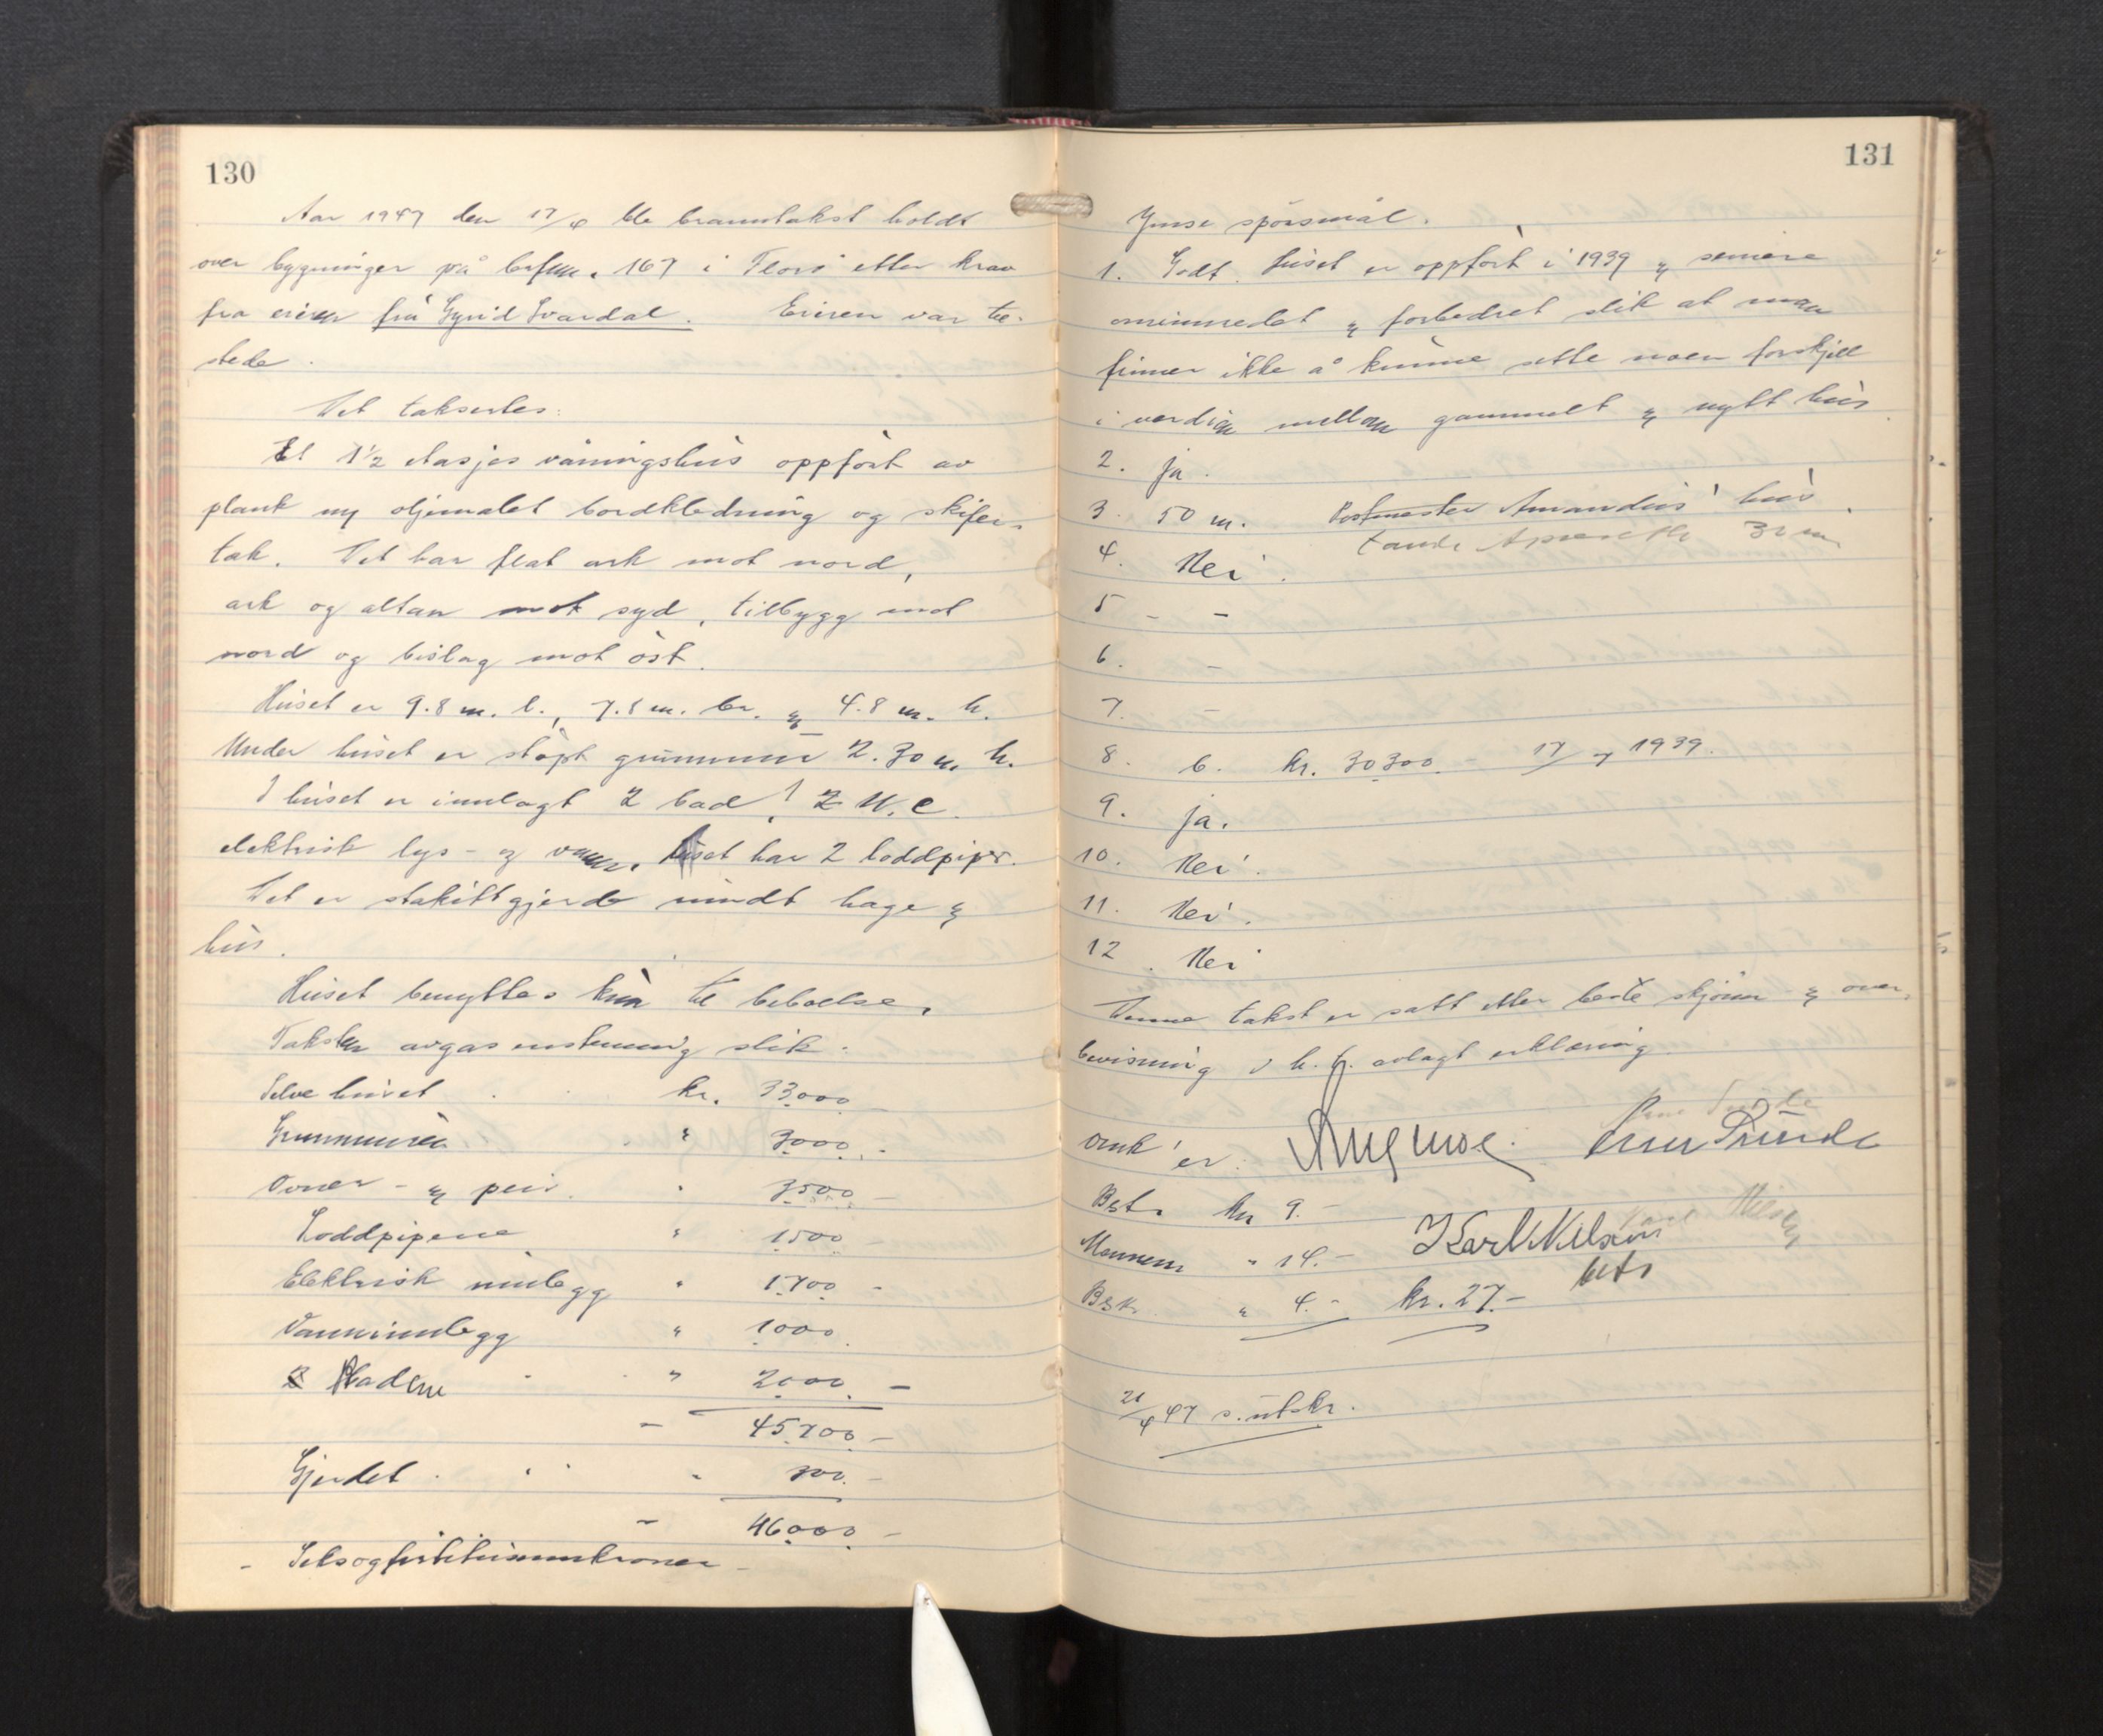 130
Aar 1947 den 17/4 ble branntakst holdt
over bygninger på brfnr. 167 i Florö etter krav
fra eieren frú Gyrid Svardal. Eieren var til-
stede.
Det takseres:
Et 1½ etasjes våningshús oppfört av
plank m/ oljemalet bordkledning og skifer-
tak. Det har flat ark mot nord,
ark og altan mot syd, tilbygg mot
nord og bislag mot öst.
Húset er 9.8 m. l., 7.8 m. br. & 4.8 m. h.
Under húset er stöpt grunnmur 2.30 m. h.
I húset er innlagt 2 bad, 2 W.C.
elektrisk lys - og vann. Húset har 2 loddpiper.
Det er stakittgjerde rundt hage &
hús.
Húset benyttes kún til beboelse.
Taksten avgas enstemmig slik:
Selve húset kr. 33000 -
Grunnmuren " 3000. -
Ovner - & peis. " 3500 -
Loddpipene " 1500 -
Elektrisk innlegg " 1700 -
Vanninnlegg " 1000
Badene " 2000 -
45.700 -
Gjerdet " 300. -
46000 -
- Seksogførtitusenkroner -
131
Ymse spörsmål.
1. Godt. Húset er oppfört i 1939 & senere
ominnredet & forbedret slik at man
finner ikke å kúnne sette noen forskjell
i verdien mellom gammelt & nytt hús.
2. ja.
3. 50 m. Postmester Amandus' hús
32 m.
4. Nei.
5 - -
6. -
7. -
8. b. kr. 30300. - 17/7 1939.
9. ja.
10. Nei.
11. Nei.
12. Nei
Denne takst er satt etter beste skjönn & over-
bevisning i h. t. avlagt erklæring
Omk'er:
Best. kr 9. -
Mennene " 14. - Karl Nilsen
" 4. - kr. 27. -
21/4 47 s. utskr.